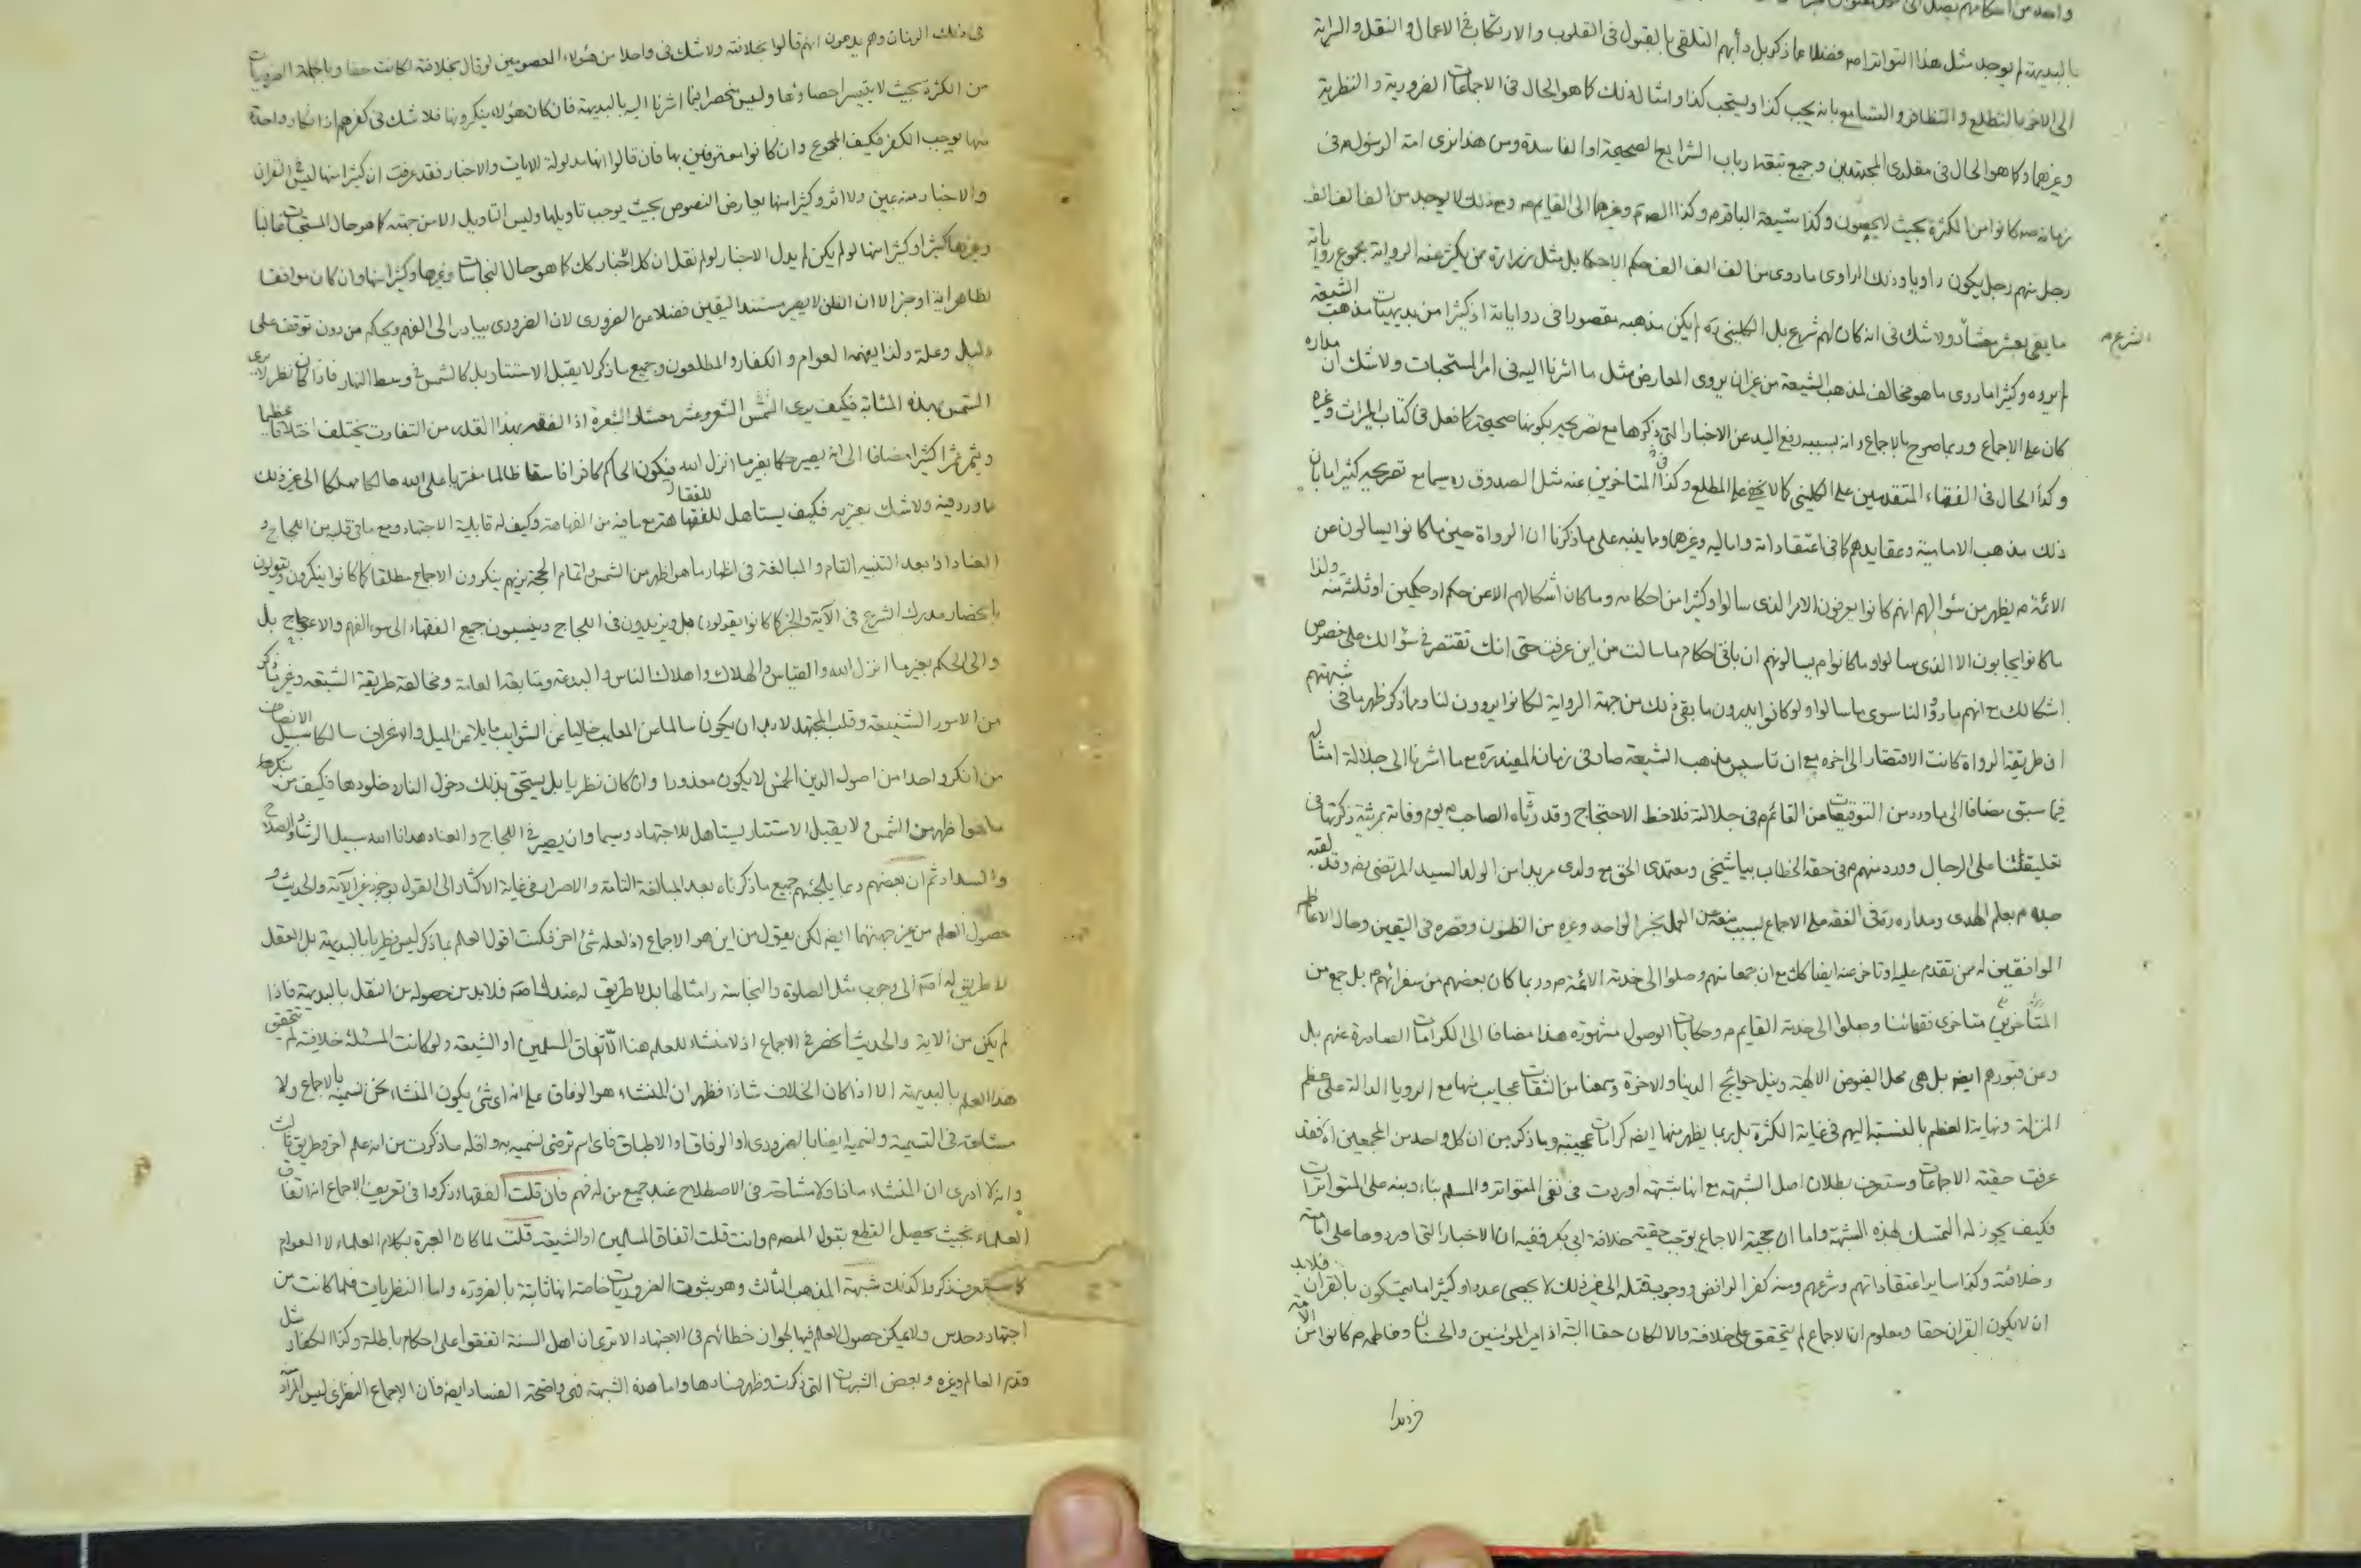 بالبديهة لم يوجد مثل هذا التواتر فضلا عما ذكر بل دأبهم التلقي بالقبول في القلوب والارتكاب في الاعمال والنقل والسراية
الى الاخر بالتطلع والتظافر والتسامع بانه يجب كذا ويستحب كذا وامثال ذلك كما هو الحال في الاجماعات الضرورية والنظرية
وغيرهما وكما هو الحال في مقلدى المجتهدين وجميع تبعة ارباب الشرايع الصحيحة او الفاسدة ومن هذا نرى امة الرسول ص في
زمانه ص كانوا من الكثرة بحيث لا يحصون وكذا شيعة الباقر ع وكذا الص ع وغيرهما الى القايم ع ومع ذلك لا يوجد من الف الف الف
رجل منهم رجل يكون راويا وذلك الراوى ما روى من الف الف الف حكم الا حكما بل مثل زرارة ممن يكثر عنه الرواية مجموع رواياته
ما يفى بعشر معشار ولا شك في انه كان لهم شرع بل الكليني ره لم يكن مذهبه مقصورا في رواياته اذ كثيرا من بديهيات مذهب الشيعة
الشرع م
لم يروه وكثيرا ما روى ما هو مخالف لمذهب الشيعة من غير ان يروى المعارض مثل ما اشرنا اليه في امر المستحبات ولا شك ان مداره
كان على الاجماع وربما صرح بالاجماع وانه بسببه رفع اليد عن الاخبار التي ذكرها مع تصريحه بكونها صحيحة كما فعل في كتاب الميراث وغيره
وكذا الحال في الفقهاء المتقدمين على الكليني كما لا يخفى على المطلع وكذا في المتاخرين عنه مثل الصدوق ره سيما مع تصريحه كثيرا بان
ذلك مذهب الامامية وعقايدهم كما في اعتقاداته واماليه وغيرها ومما ينبه على ما ذكرنا ان الرواة حين ما كانوا يسالون عن
الائمة ع يظهر من سؤالهم انهم كانوا يعرفون الامر الذى سالوا وكثيرا من احكامه وما كان اشكالهم الا عن حكم او حكمين او ثلثة منه ولذا
ما كانوا يجابون الا الذى سالوا وما كانوا ع يسالونهم ان باقي احكام ما سالت من اين عرفت حتى انك تقتصر في سؤالك على خصوص
اشكالك مع انهم ما رووا لنا سوى ما سالوا ولو كانوا يدرون ما بقى ذلك من جهة الرواية لكانوا يروون لنا ومما ذكر ظهر ما في شبهتهم
ان طريقة الرواة كانت الاقتصار الى اخره مع ان تاسيس مذهب الشيعة صار في زمان المفيد ره مع ما اشرنا الى جلالة امثاله
فيما سبق مضافا الى ما ورد من التوقيعات من القائم ع في جلالته فلاحظ الاحتجاج وقد رثاه الصاحب ع يوم وفاته بمرثية ذكرتها في
تعليقتنا على الرجال وورد منهم ع في حقه الخطاب بيا شيخي ومعتمدى الحق مع ولدى مريدا من الولد السيد المرتضى رضه وقد لقبه
جده ع بعلم الهدى ومداره ره في الفقه على الاجماع لسبب منعه عن العمل بخبر الواحد وغيره من الظنون وقصره في اليقين وحال الاعاظم
الموافقين له ممن تقدم عليه او تاخر عنه ايضا كك مع ان جمعا منهم وصلوا الى خدمة الائمة ع وربما كان بعضهم من سفرائهم ع بل جمع من
المتاخرين متاخرى فقهائنا وصلوا الى خدمة القايم ع وحكايات الوصول مشهورة هذا مضافا الى الكرامات الصادرة عنهم بل
وعن قبورهم ايضا بل هى محل الفيوض الالهية ونيل حوايج الدنيا والاخرة وسمعنا من الثقات عجايب منها مع الرويا الدالة على عظم
المنزلة ونهاية العظم بالنسبة اليهم في غاية الكثرة بل ربما يظهر منها ايضا كرامات عجيبة وما ذكر من ان كل واحد من المجمعين اه فقد
عرفت حقيقة الاجماعات وستعرف بطلان اصل الشبهة مع انها شبهة اوردت في نفى المتواتر والمسلم بناء دينه على المتواترات
فكيف يجوز له التمسك بهذه الشبهة واما ان حجية الاجماع يوجب حقية خلافة ابي بكر ففيه ان الاخبار التي اوردوها على امامته
وخلافته وكذا ساير اعتقاداتهم وشرعهم ومنه كفر الروافض ووجوب قتله الى غير ذلك لا يحصى عددا وكثيرا ما يتمسكون بالقران فلا بد
ان لا يكون القران حقا ومعلوم ان الاجماع لم يتحقق على خلافته والا لكان حقا البتة اذ امير المؤمنين والحسنان وفاطمة ع كانوا من الامة
في ذلك الزمان وهم يدعون انهم قالوا بخلافته ولا شك في واحدا من هؤلاء المعصومين لو قال بخلافته لكانت حقا وبالجملة الضروريات
من الكثرة بحيث لا يتيسر احصاؤها وليس منحصرا فيما اشرنا اليه بالبديهة فان كان هؤلاء ينكرونها فلا شك في كفرهم اذ انكار واحدة
منها يوجب الكفر فكيف المجموع وان كانوا معترفين بها فان قالوا انها مدلولة الايات والاخبار فقد عرفت ان كثيرا منها ليس في القران
والاخبار منه عين ولا اثر وكثيرا منها يعارض النصوص بحيث يوجب تاويلها وليس التاويل الا من جهته كما هو حال المستحبات غالبا
وغيرها كثيرا وكثيرا منها لو لم يكن لم يدل الاخبار لو لم نقل ان كل اخبار كك كما هو حال النجاسات وغيرها وكثيرا منها وان كان موافقا
لظاهر اية او خبر الا ان الظن لا يصير مستند اليقين فضلا عن الضرورى لان الضرورى يبادر الى الفهم ويحكم من دون توقف على
دليل وعلة ولذا يفهمه العوام والكفار المطلعون وجميع ما ذكر لا يقبل الاستتار بل كالشمس في وسط النهار فاذا كان نظر لا يرى
الشمس بهذه المثابة فكيف يرى الشعر وعشر معشار الشعرة اذ الفقه بهذا القدر من التفاوت يختلف اختلافا عظيما
ويثمر ثمرا كثيرا مضافا الى انه يصير حكما بغير ما انزل الله فيكون الحاكم كافرا فاسقا ظالما مفتريا على الله هالكا مهلكا الى غير ذلك
مما ورد فيه ولا شك يعتريه فكيف يستاهل للفقاهة مع ما فيه من الفهاهة وكيف له قابلية الاجتهاد ومع ما في قلبه من اللجاج و
العناد اذ بعد التنبيه التام والمبالغة في اظهار ما هو اظهر من الشمس واتمام الحجة نريهم ينكرون الاجماع مطلقا كما كانوا ينكرون ويقولون
بانحصار مدرك الشرع في الآية والخبر كما كانوا يقولون بل ويزيدون في اللجاج وينسبون جميع الفقهاء الى سوء الفهم والاعوجاج بل
والى الحكم بغير ما انزل الله والقياس والهلاك واهلاك الناس والبدعة ومتابعة العامة ومخالفة طريقة الشيعة وغير ما ذكر
من الامور الشنيعة وقلب المجتهد لا بد ان يكون سالما عن المعايب خاليا عن الشوايب مايلا عن الميل والاعراف سالكا سبيل الانصاف
من انكر واحدا من اصول الدين الخمس لا يكون معذورا وان كان نظريا بل يستحق بذلك دخول النار وخلودها فكيف من ينكر
ما هو اظهر من الشمس ولا يقبل الاستتار يستاهل للاجتهاد وسيما وان يصير في اللجاج والعناد هدانا الله سبيل الرشاد والصلاح
والسداد ثم ان بعضهم ربما يلجئهم جميع ما ذكرناه بعد المبالغة التامة والاصرار في غاية الاكثار الى القول بوجود غير الآية والحديث و
حصول العلم من غير جهتهما ايضا لكن يقول من اين هو الاجماع اذ لعله شئ اخر فكنت اقول العلم بما ذكر ليس نظريا بالبديهة بل العقل
لا طريق له اصلا الى وجوب مثل الصلوة والنجاسة وامثالها بل لا طريق له عند الخاصة فلا بد من حصوله من النقل بالبديهة فاذا
لم يكن من الاية والحديث انحصر في الاجماع اذ لا منشاء للعلم هنا الا اتفاق المسلمين او الشيعة ولو كانت المسئلة خلافية لم يتحقق
هذا العلم بالبديهة الا اذا كان الخلاف شاذا فظهر ان المنشاء هو الوفاق على انه اى شئ يكون المنشاء نحن نسميه بالاجماع ولا
مشاحة في التسمية ونسميه ايضا بالضرورى او الوفاق او الاطباق فاى اسم ترضى نسميه به واقله ما ذكرت من انه علم اخر وطريق ثالث
وانه لا ادرى ان المنشاء ماذا ولا مشاحة في الاصطلاح عند جميع من له فهم فان قلت الفقهاء ذكروا في تعريف الاجماع انه اتفاق
العلماء بحيث يحصل القطع بقول المعصوم وانت قلت اتفاق المسلمين او الشيعة قلت لما كان العبرة بكلام العلماء لا العوام
كما ستعرف ذكروا كذلك شبهة المذهب الثالث وهو بثبوت الضروريات خاصة انها ثابتة بالضرورة واما النظريات فلما كانت من
اجتهاد وحدس ولا يمكن حصول العلم فيها لجواز خطائهم في الاجتهاد الا ترى ان اهل السنة اتفقوا على احكام باطلة وكذا الكفار مثل
قدم العالم وغيره وبعض الشبهات التي ذكرت وظهر فسادها واما هذه الشبهة فهى واضحة الفساد ايضا فان الاجماع النظرى ليس المراد